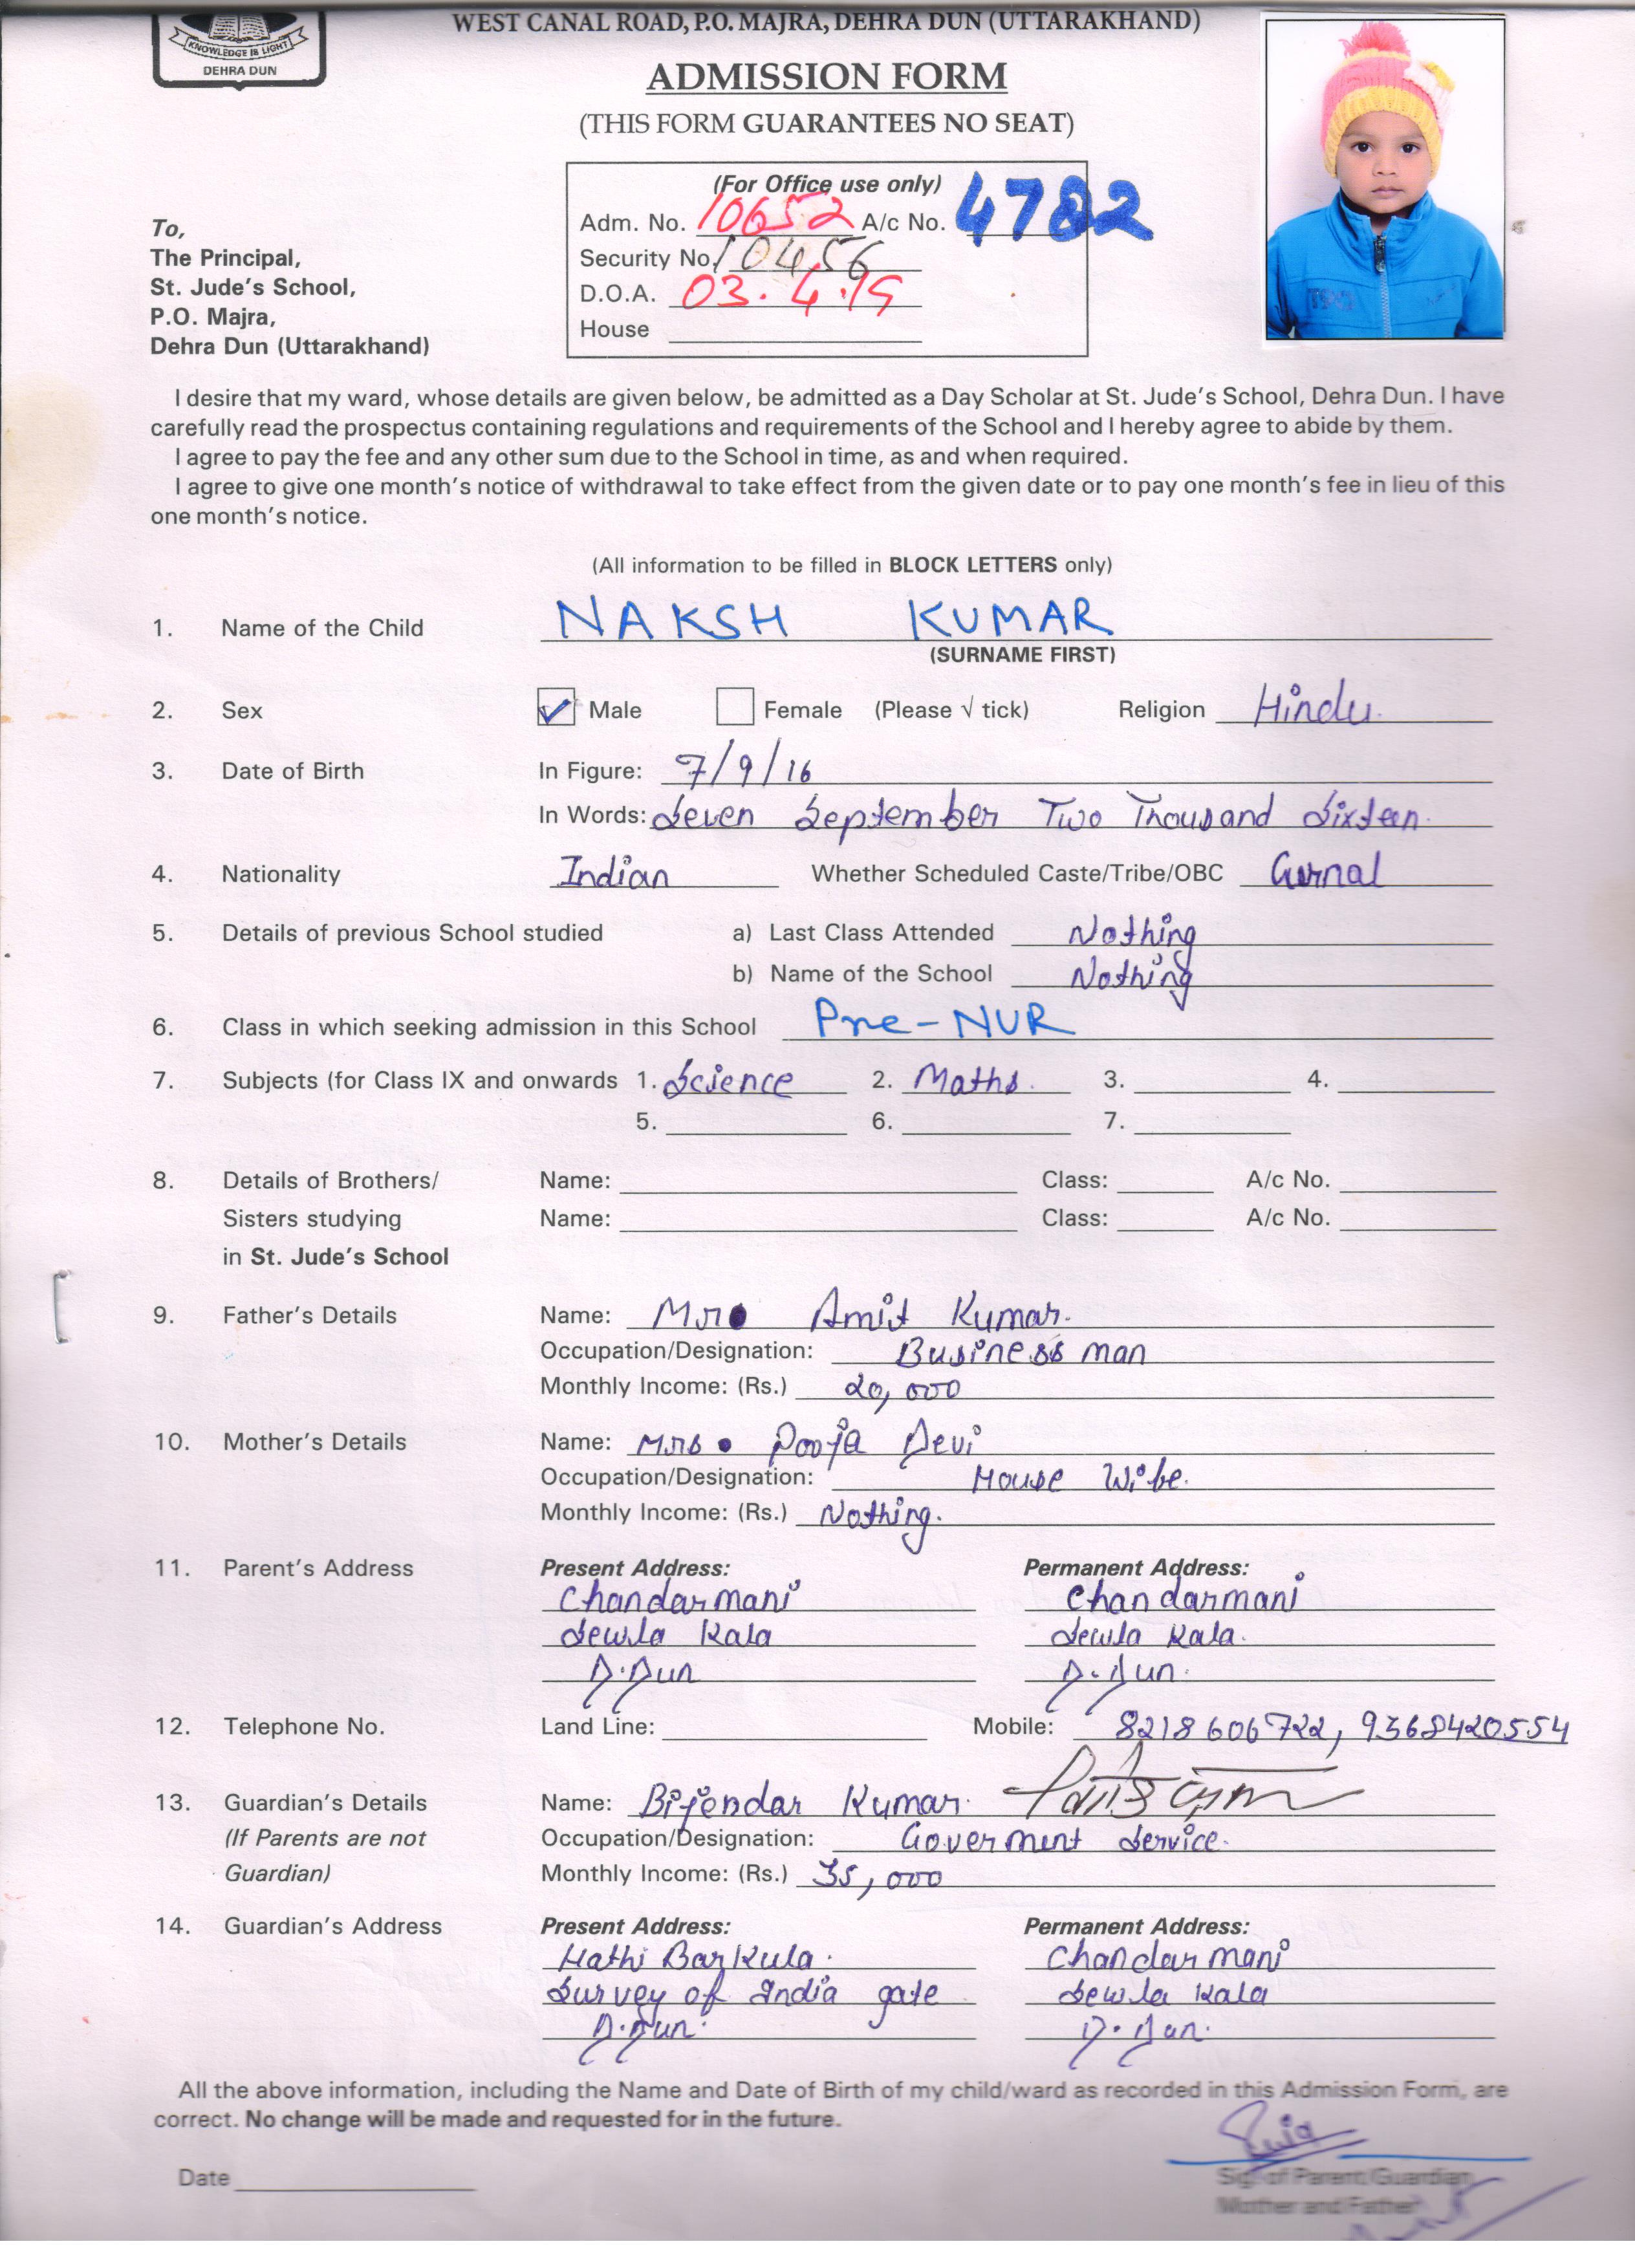 KNOWLEDGE IS LIGHT
DEHRA DUN
WEST CANAL ROAD, P.O. MAJRA, DEHRA DUN (UTTARAKHAND)
ADMISSION FORM
(THIS FORM GUARANTEES NO SEAT)
(For Office use only)
Adm. No. 10652 A/c No. 4782
Security No. 10456
D.O.A. 03.4.19
House
To,
The Principal,
St. Jude's School,
P.O. Majra,
Dehra Dun (Uttarakhand)
I desire that my ward, whose details are given below, be admitted as a Day Scholar at St. Jude's School, Dehra Dun. I have
carefully read the prospectus containing regulations and requirements of the School and I hereby agree to abide by them.
I agree to pay the fee and any other sum due to the School in time, as and when required.
I agree to give one month's notice of withdrawal to take effect from the given date or to pay one month's fee in lieu of this
one month's notice.
(All information to be filled in BLOCK LETTERS only)
1. Name of the Child NAKSH KUMAR
(SURNAME FIRST)
2. Sex ✓ Male Female (Please √ tick) Religion Hindu.
3. Date of Birth In Figure: 7/9/16
In Words: Seven September Two Thousand Sixteen.
4. Nationality Indian Whether Scheduled Caste/Tribe/OBC
5. Details of previous School studied a) Last Class Attended Nothing
b) Name of the School Nothing
6. Class in which seeking admission in this School Pre-NUR
7. Subjects (for Class IX and onwards 1. Science 2. Maths. 3. 4.
5. 6. 7.
8. Details of Brothers/ Name: Class: A/c No.
Sisters studying Name: Class: A/c No.
in St. Jude's School
9. Father's Details Name: Mr. Amit Kumar.
Occupation/Designation: Business man
Monthly Income: (Rs.) 20,000
10. Mother's Details Name: Mrs. Pooja Devi
Occupation/Designation: House Wife.
Monthly Income: (Rs.) Nothing.
11. Parent's Address Present Address: Permanent Address:
Chandarmani Chandarmani
Sewla Kala Sewla Kala.
D.Dun D.Dun.
12. Telephone No. Land Line: Mobile: 8218606722, 9368420554
13. Guardian's Details Name: Bijendar Kumar.
(If Parents are not Occupation/Designation: Goverment Service.
Guardian) Monthly Income: (Rs.) 35,000
14. Guardian's Address Present Address: Permanent Address:
Hathi Barkula. Chandarmani
Survey of India gate Sewla Kala
D.Dun. D.Dun.
All the above information, including the Name and Date of Birth of my child/ward as recorded in this Admission Form, are
correct. No change will be made and requested for in the future.
Date
Sig. of Parent/Guardian
Mother and Father